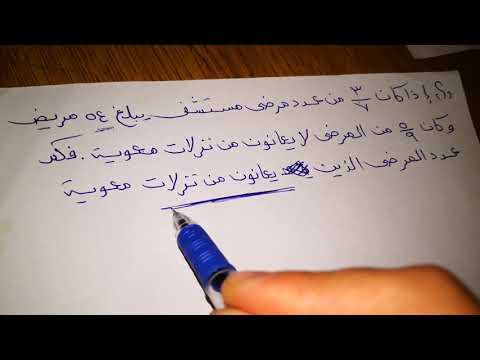 س/ إذا كان ٣/٧ من عدد مرضى مستشفى يبلغ ٥٤ مريض
وكان ٥/٩ من المرضى لا يعانون من نزلات معوية . فكم
عدد المرضى الذين يعانون من نزلات معوية